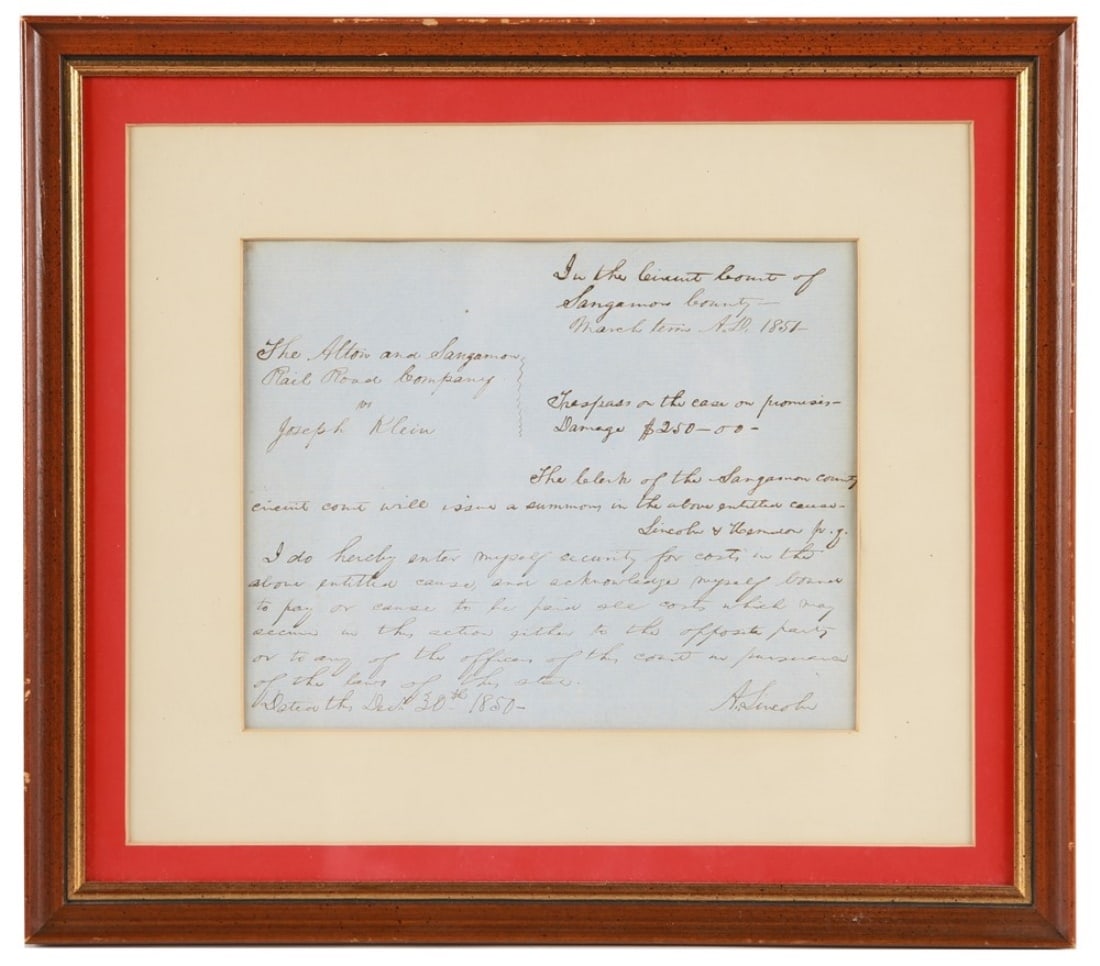 In the Circuit Court of
Sangamon County—
March term A.D. 1851—
The Alton and Sangamon
Rail Road Company
vs
Joseph Klein
Trespass on the case on promises—
Damage $250-00-
The Clerk of the Sangamon county
circuit court will issue a summons in the above entitled cause—
Lincoln & Herndon p.q.
I do hereby enter myself security for costs in the
above entitled cause, and acknowledge myself bound
to pay or cause to be paid all costs which may
accrue in this action either to the opposite party
or to any of the officers of this court in pursuance
of the laws of this state.
Dated this Decr. 30th. 1850—
A. Lincoln